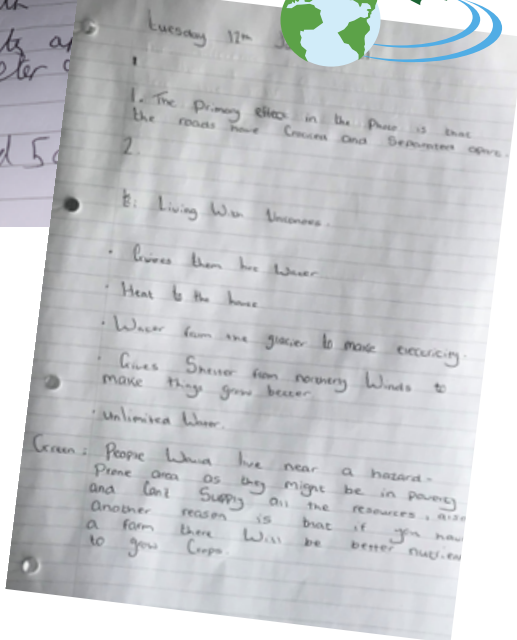 Tuesday 12th
1
1. The Primary effect in the Photo is that
the roads have Cracked and Separated apart.
2.
Living With Unconoes.
Gives them hot Water
Heat to the house
Water from the glacier to make electricity.
Gives Shelter from northerly Winds to
make things grow better
Unlimited Water.
Green: People Would live near a hazard-
Prone area as they might be in poverty
and Can't Supply all the resources, also
another reason is that if you hav
a farm there Will be better nutrien
to grow Crops.